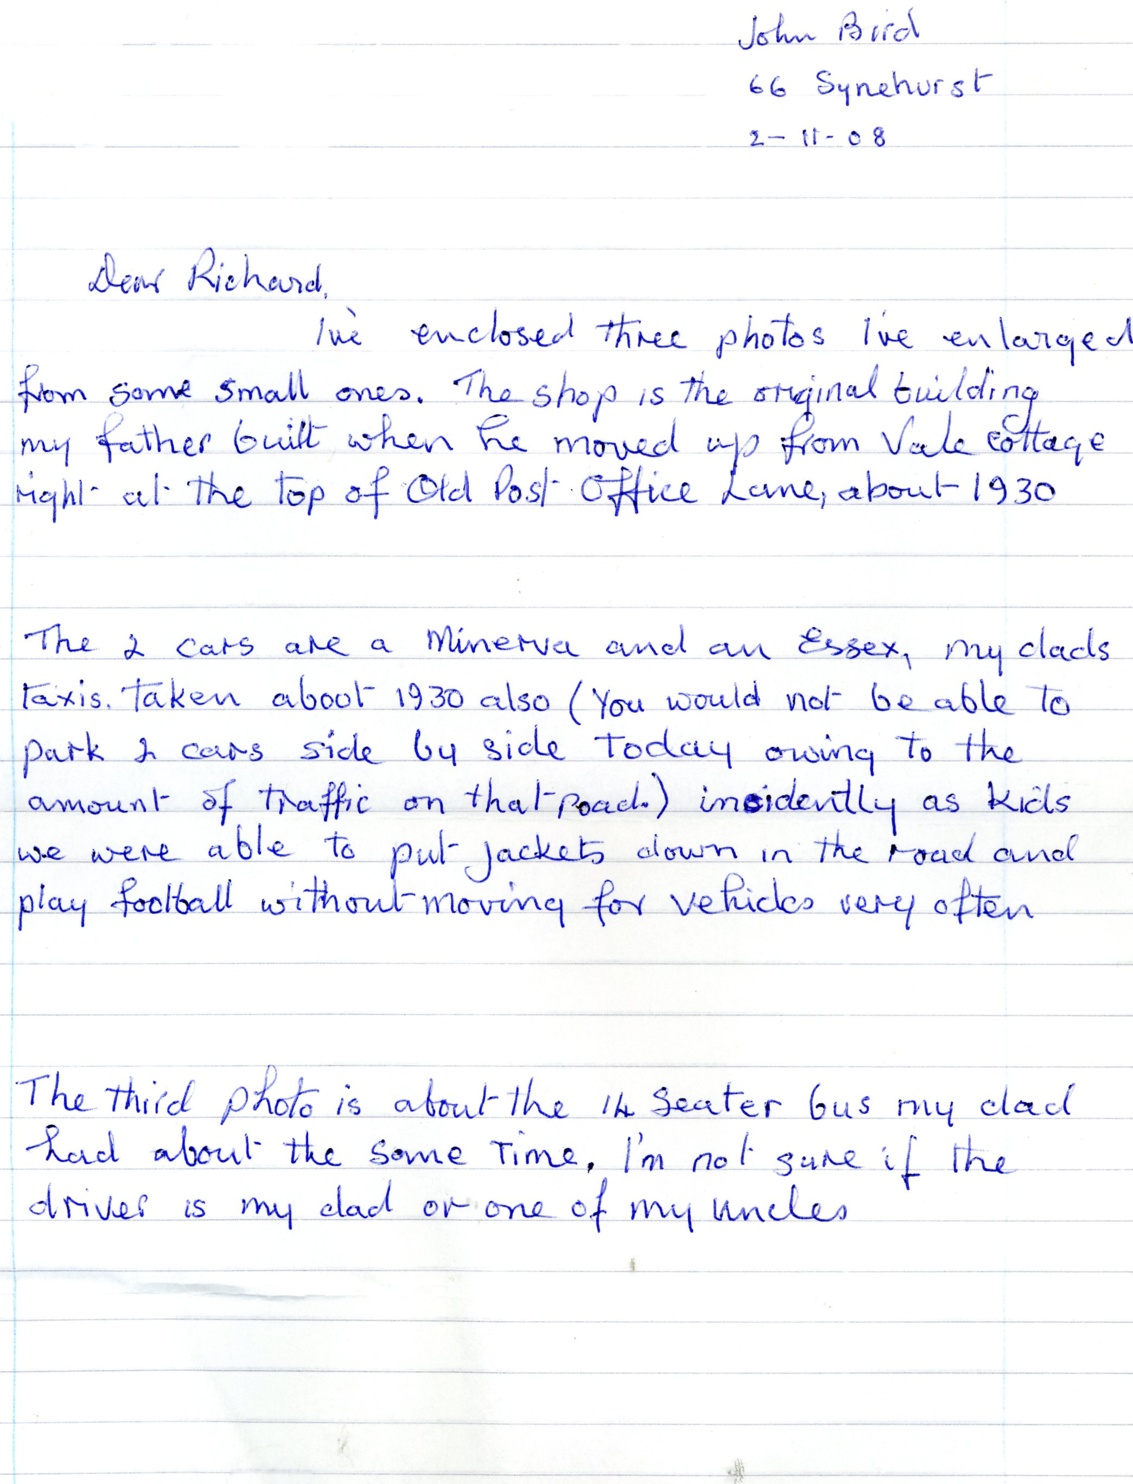 John Bird
66 Synehurst
2-11-08
Dear Richard,
I've enclosed three photos I've enlarged
from some small ones. The shop is the original building
my father built when he moved up from Vale cottage
right at the top of Old Post Office Lane, about 1930
The 2 cars are a Minerva and an Essex, my dads
taxis. taken about 1930 also (You would not be able to
park 2 cars side by side today owing to the
amount of traffic on that road.) insidently as kids
we were able to put jackets down in the road and
play football without moving for vehicles very often
The third photo is about the 14 seater bus my dad
had about the same time. I'm not sure if the
driver is my dad or one of my uncles